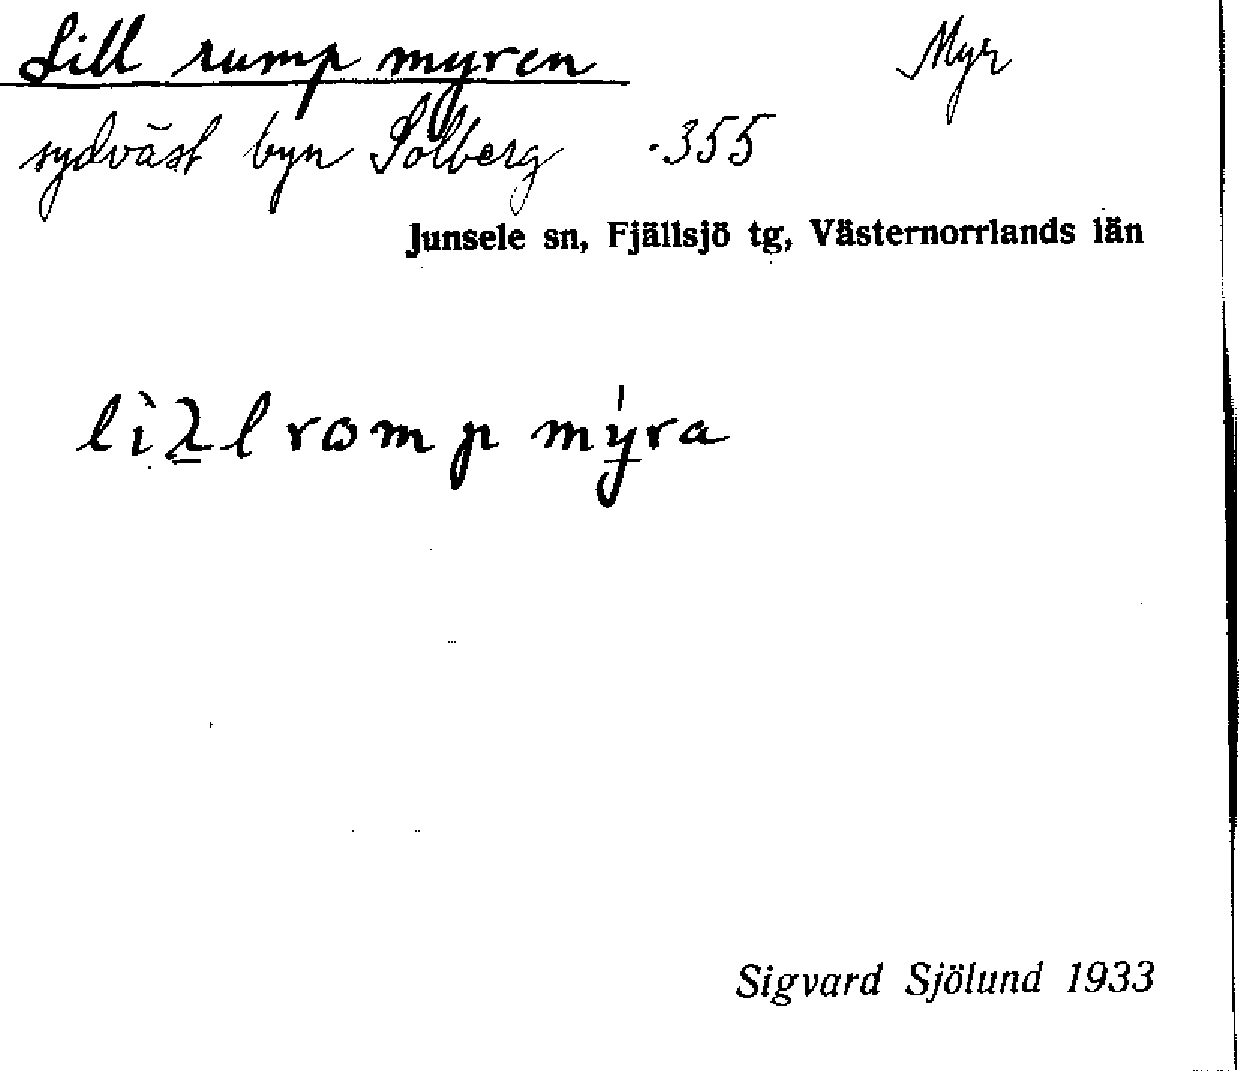 Lill rumpmyren Myr
sydväst byn Solberg .355
Junsele sn, Fjällsjö tg, Västernorrlands län
lìλ̲lrompmy̍ra
Sigvard Sjölund 1933